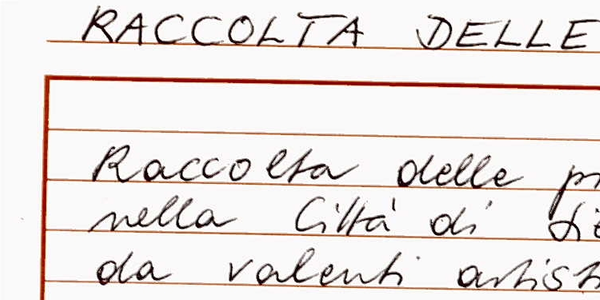 RACCOLTA DELLE
Raccolta delle
nella Città di
da valenti